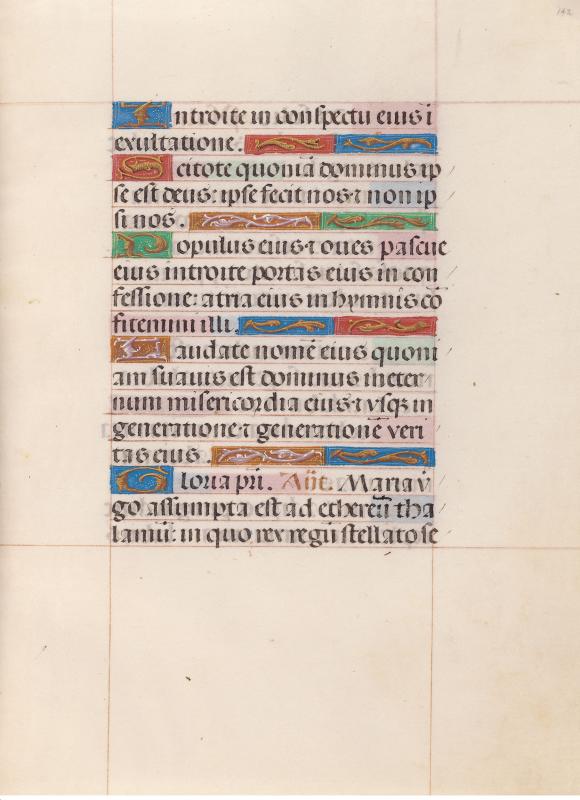 142
Introite in conspectu eius i
exultatione.
Scitote quoniā dominus ip
se est deus: ipse fecit nos ⁊ non ip
si nos.
Populus eius ⁊ oues pascue
eius introite portas eius in con
fessione: atria eius in hymnis cō
fitemini illi.
Laudate nomē eius quoni
am suauis est dominus in eter
num misericordia eius ⁊ vsqꝫ in
generatione ⁊ generationē veri
tas eius.
Gloria pri. Añt. Maria v̄
go assumpta est ad ethereū tha
lamū: in quo rex regū stellato se